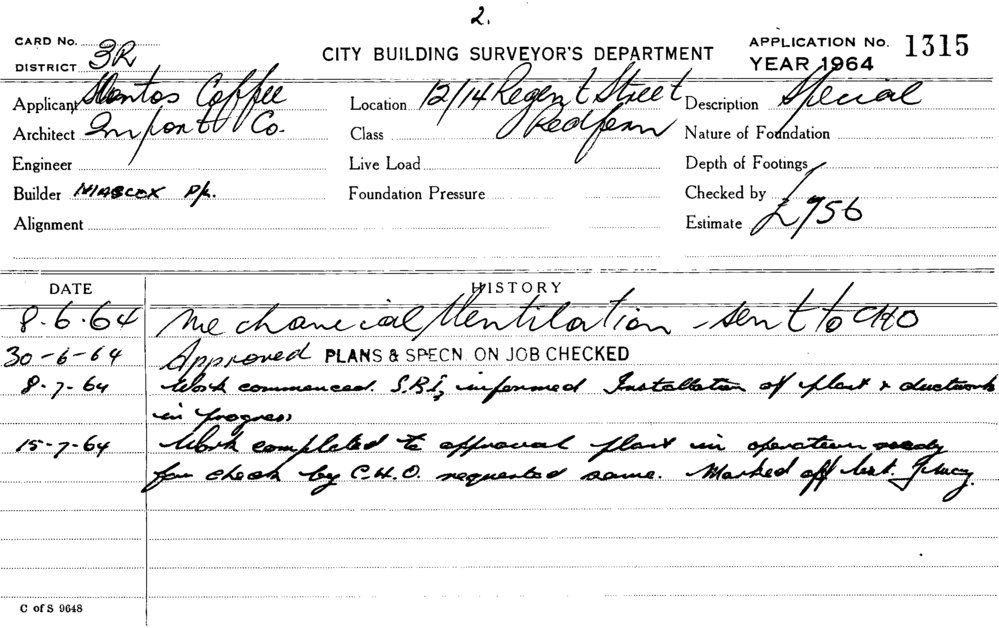 2.
CARD No.
DISTRICT 3R
CITY BUILDING SURVEYOR'S DEPARTMENT
APPLICATION No. 1315
YEAR 1964
Applicant Santos Coffee
Location 12/14 Regent Street
Description Special
Architect Import Co.
Class Redfern
Nature of Foundation
Engineer
Live Load
Depth of Footings
Builder P/L.
Foundation Pressure
Checked by
Alignment
Estimate £756
DATE HISTORY
8.6.64 Mechanical Ventilation - sent to CHO
30-6-64 Approved PLANS & SPECN. ON JOB CHECKED
8-7-64 Work commenced. informed Installation of plant & ductwork
in progress
15-7-64 Work completed to approval plant in operation ready
for check by C.H.O. requested same. Marked off
C of S 9648